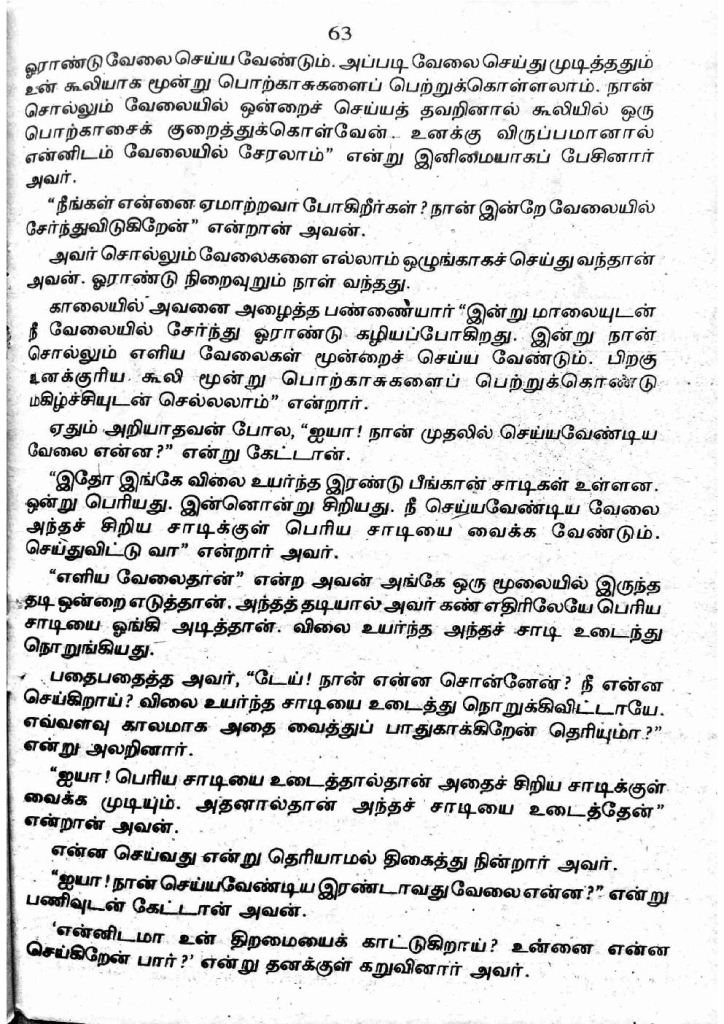 63
ஓராண்டு வேலை செய்ய வேண்டும். அப்படி வேலை செய்து முடித்ததும்
உன் கூலியாக மூன்று பொற்காசுகளைப் பெற்றுக்கொள்ளலாம். நான்
சொல்லும் வேலையில் ஒன்றைச் செய்யத் தவறினால் கூலியில் ஒரு
பொற்காசைக் குறைத்துக்கொள்வேன். உனக்கு விருப்பமானால்
என்னிடம் வேலையில் சேரலாம்” என்று இனிமையாகப் பேசினார்
அவர்.
“நீங்கள் என்னை ஏமாற்றவா போகிறீர்கள்? நான் இன்றே வேலையில்
சேர்ந்துவிடுகிறேன்” என்றான் அவன்.
அவர் சொல்லும் வேலைகளை எல்லாம் ஒழுங்காகச் செய்து வந்தான்
அவன். ஓராண்டு நிறைவுறும் நாள் வந்தது.
காலையில் அவனை அழைத்த பண்ணையார் “இன்று மாலையுடன்
நீ வேலையில் சேர்ந்து ஓராண்டு கழியப்போகிறது. இன்று நான்
சொல்லும் எளிய வேலைகள் மூன்றைச் செய்ய வேண்டும். பிறகு
உனக்குரிய கூலி மூன்று பொற்காசுகளைப் பெற்றுக்கொண்டு
மகிழ்ச்சியுடன் செல்லலாம்” என்றார்.
ஏதும் அறியாதவன் போல, “ஐயா! நான் முதலில் செய்யவேண்டிய
வேலை என்ன?” என்று கேட்டான்.
“இதோ இங்கே விலை உயர்ந்த இரண்டு பீங்கான் சாடிகள் உள்ளன.
ஒன்று பெரியது. இன்னொன்று சிறியது. நீ செய்யவேண்டிய வேலை
அந்தச் சிறிய சாடிக்குள் பெரிய சாடியை வைக்க வேண்டும்.
செய்துவிட்டு வா” என்றார் அவர்.
“எளிய வேலைதான்” என்ற அவன் அங்கே ஒரு மூலையில் இருந்த
தடி ஒன்றை எடுத்தான். அந்தத் தடியால் அவர் கண் எதிரிலேயே பெரிய
சாடியை ஓங்கி அடித்தான். விலை உயர்ந்த அந்தச் சாடி உடைந்து
நொறுங்கியது.
பதைபதைத்த அவர், “டேய்! நான் என்ன சொன்னேன்? நீ என்ன
செய்கிறாய்? விலை உயர்ந்த சாடியை உடைத்து நொறுக்கிவிட்டாயே.
எவ்வளவு காலமாக அதை வைத்துப் பாதுகாக்கிறேன் தெரியுமா?”
என்று அலறினார்.
“ஐயா! பெரிய சாடியை உடைத்தால்தான் அதைச் சிறிய சாடிக்குள்
வைக்க முடியும். அதனால்தான் அந்தச் சாடியை உடைத்தேன்”
என்றான் அவன்.
என்ன செய்வது என்று தெரியாமல் திகைத்து நின்றார் அவர்.
“ஐயா! நான் செய்யவேண்டிய இரண்டாவது வேலை என்ன?” என்று
பணிவுடன் கேட்டான் அவன்.
‘என்னிடமா உன் திறமையைக் காட்டுகிறாய்? உன்னை என்ன
செய்கிறேன் பார்?’ என்று தனக்குள் கறுவினார் அவர்.